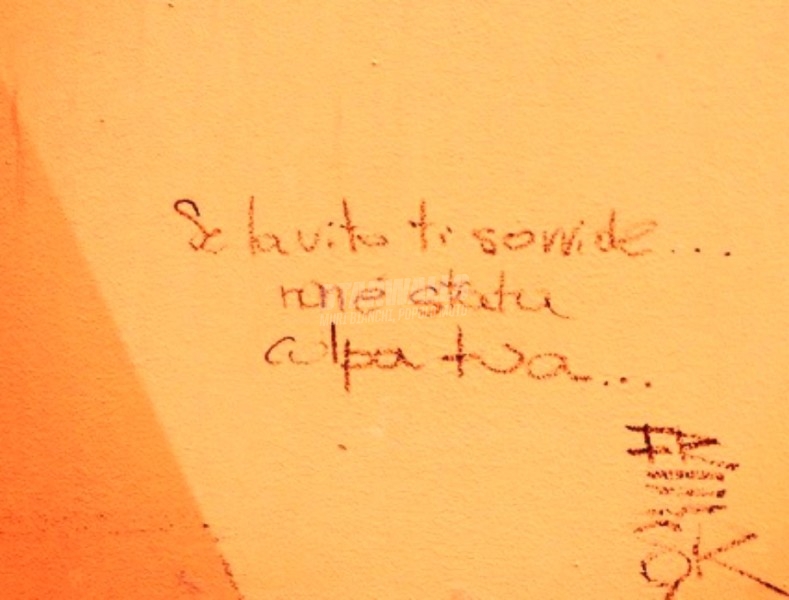 Se la vita ti sorride...
non è stata
colpa tua...